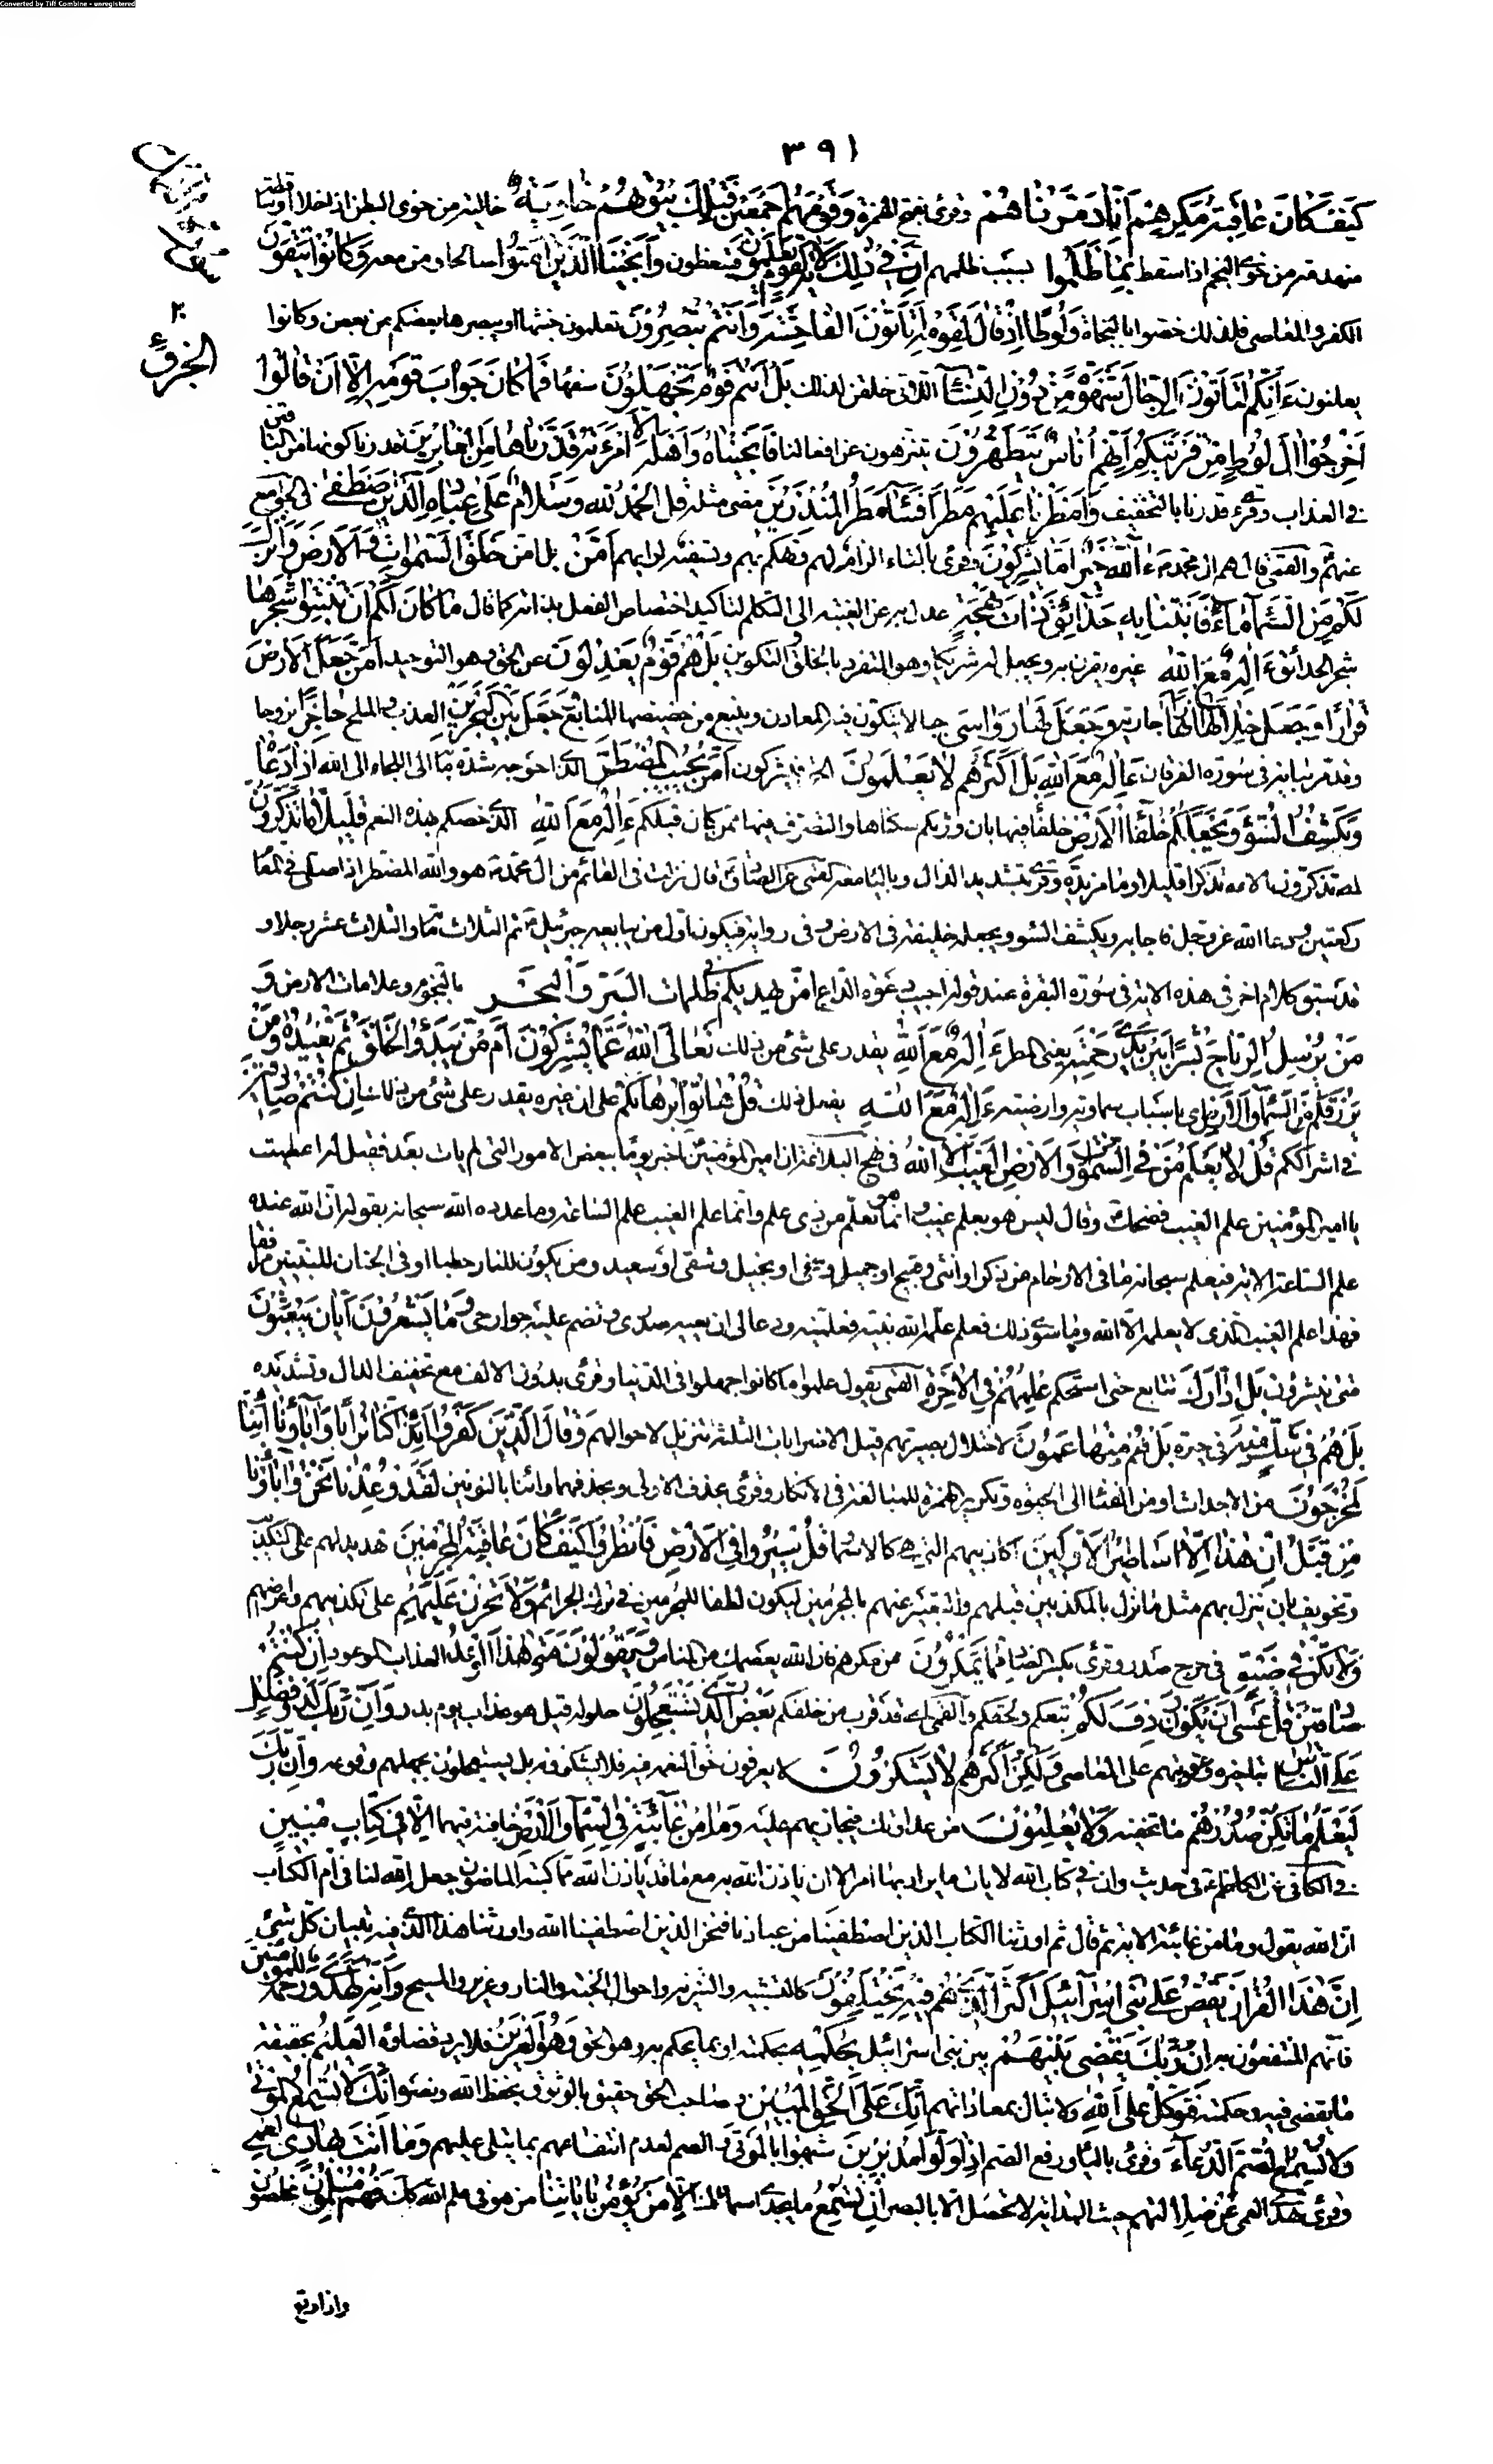 Converted by Tiff Combine - unregistered
٣٩١
كيف كان عاقبة مكرهم انا دمرناهم وقرئ بفتح الهمزة وقومهم اجمعين فتلك بيوتهم خاوية خالية من خوى البطن اذا خلا او ساقطة
منهدمة من خوى النجم اذا سقط بما ظلموا بسبب ظلمهم ان في ذلك لاية لقوم يعلمون فيتعظون وانجينا الذين امنوا صالحا ومن معه وكانوا يتقون
الجزء ٢٠
الكفر والمعاصي فلذلك خصوا بالنجاة ولوطا اذ قال لقومه اتاتون الفاحشة وانتم تبصرون تعلمون خبثها او يبصرها بعضكم من بعض وكانوا
يعلنون ءانكم لتاتون الرجال شهوة من دون النساء اللاتي خلقن لذلك بل انتم قوم تجهلون سفها فما كان جواب قومه الا ان قالوا
اخرجوا ال لوط من قريتكم انهم اناس يتطهرون يتنزهون عن افعالنا فانجيناه واهله الا امرءته قدرناها من الغابرين قدرنا كونها من الباقين
في العذاب وقرئ قدرنا بالتخفيف وامطرنا عليهم مطرا فساء مطر المنذرين مضى مثله قل الحمد لله وسلام على عباده الذين اصطفى في الجوامع
عنهم والقمي قال هم ال محمد ءالله خير اما يشركون وقرئ بالتاء الزام لهم وتهكم بهم وتسفيه لرايهم امن بل امن خلق السموات والارض وانزل
لكم من السماء ماء فانبتنا به حدائق ذات بهجة عدل به عن الغيبة الى التكلم لتاكيد اختصاص الفعل بذاته كما قال ما كان لكم ان تنبتوا شجرها
شجر الحدائق ءاله مع الله غيره يقرن به ويجعل له شريكا وهو المتفرد بالخلق والتكوين بل هم قوم يعدلون عن الحق وهو التوحيد امن جعل الارض
قرارا وجعل خلالها انهارا جارية وجعل لها رواسي جبالا يتكون فيها المعادن وينبع من حضيضها المنابع وجعل بين البحرين العذب والملح حاجزا برزخا
وقد مر بيانه في سورة الفرقان ءاله مع الله بل اكثرهم لا يعلمون الحق فيشركون امن يجيب المضطر الذي احوجه شدة ما به الى اللجاء الى الله اذا دعاه
ويكشف السوء ويجعلكم خلفاء الارض خلفاء فيها بان ورثكم سكناها والتصرف فيها ممن كان قبلكم ءاله مع الله الذي خصكم بهذه النعم قليلا ما تذكرون
اي تذكرون الاءه تذكرا قليلا وما مزيدة وقرئ بتشديد الذال وبالياء معه القمي عن الصادق قال نزلت في القائم من ال محمد هو والله المضطر اذا صلى في المقام
ركعتين ودعا الله عز وجل فاجابه ويكشف السوء ويجعله خليفة في الارض وفي رواية فيكون اول من يبايعه جبرئيل ثم الثلاث مائة والثلاث عشر رجلا و
قد سبق كلام اخر في هذه الاية في سورة البقرة عند قوله اجيب دعوة الداع امن يهديكم في ظلمات البر والبحر بالنجوم وعلامات الارض و
من يرسل الرياح بشرا بين يدي رحمته يعني المطر ءاله مع الله يقدر على شيء من ذلك تعالى الله عما يشركون امن يبدؤا الخلق ثم يعيده ومن
يرزقكم من السماء والارض اي باسباب سماوية وارضية ءاله مع الله يفعل ذلك قل هاتوا برهانكم على ان غيره يقدر على شيء من ذلك ان كنتم صادقين
في اشراككم قل لا يعلم من في السموات والارض الغيب الا الله في نهج البلاغة ان امير المؤمنين اخبر يوما ببعض الامور التي لم يات بعد فقيل له اعطيت
يا امير المؤمنين علم الغيب فضحك وقال ليس هو بعلم غيب وانما هو تعلم من ذي علم وانما علم الغيب علم الساعة وما عدده الله سبحانه بقوله ان الله عنده
علم الساعة الاية فيعلم سبحانه ما في الارحام من ذكر او انثى وقبيح او جميل وسخي او بخيل وشقي او سعيد ومن يكون للنار حطبا او في الجنان للنبيين مرافقا
فهذا علم الغيب الذي لا يعلمه الا الله وما سوى ذلك فعلم علمه الله نبيه فعلمنيه ودعا لي ان يعيه صدري وتضم عليه جوارحي وما يشعرون ايان يبعثون
متى ينشرون بل ادارك تتابع حتى استحكم علمهم في الاخرة القمي يقول علموا ما كانوا جهلوا في الدنيا وقرئ بدون الالف مع تخفيف الدال وتشديده
بل هم في شك منها في حيرة بل هم منها عمون لاختلال بصيرتهم قيل الاضرابات الثلثة تنزيل لاحوالهم وقال الذين كفروا ءاذا كنا ترابا واباؤنا ائنا
لمخرجون من الاجداث او من الفناء الى الحيوة وتكرير الهمزة للمبالغة في الانكار وقرئ بحذف الاولى وبحذفهما واننا بالنونين لقد وعدنا هذا نحن واباؤنا
من قبل ان هذا الا اساطير الاولين اكاذيبهم التي هي كالاسمار قل سيروا في الارض فانظروا كيف كان عاقبة المجرمين تهديد لهم على التكذيب
وتخويف بان ينزل بهم مثل ما نزل بالمكذبين قبلهم والتعبير عنهم بالمجرمين ليكون لطفا للمؤمنين في ترك الجرائم ولا تحزن عليهم على تكذيبهم واعراضهم
ولا تكن في ضيق في حرج صدر وقرئ بكسر الضاد مما يمكرون من مكرهم فان الله يعصمك من الناس ويقولون متى هذا الوعد العذاب الموعود ان كنتم
صادقين قل عسى ان يكون ردف لكم تبعكم ولحقكم والقمي اي قد قرب من خلفكم بعض الذي تستعجلون حلوله قيل هو عذاب يوم بدر وان ربك لذو فضل
على الناس بتاخير عقوبتهم على المعاصي ولكن اكثرهم لا يشكرون لا يعرفون حق النعمة فيه فلا يشكرونه بل يستعجلون بجهلهم وقوعه وان ربك
ليعلم ما تكن صدورهم ما تخفيه وما يعلنون من عداوتك فيجازيهم عليه وما من غائبة في السماء والارض خافية فيهما الا في كتاب مبين
في الكافي عن الكاظم في حديث وان في كتاب الله لايات ما يراد بها امر الا ان ياذن الله به مع ما قد ياذن الله مما كتبه الماضون جعله الله لنا في ام الكتاب
ان الله يقول وما من غائبة الاية ثم قال ثم اورثنا الكتاب الذين اصطفينا من عبادنا فنحن الذين اصطفينا الله واورثنا هذا الذي فيه تبيان كل شيء
ان هذا القران يقص على بني اسرائيل اكثر الذي هم فيه يختلفون كالتشبيه والتنزيه واحوال الجنة والنار وعزير والمسيح وانه لهدى ورحمة للمؤمنين
فانهم المنتفعون به ان ربك يقضي بينهم بين بني اسرائيل بحكمه بحكمته او بما يحكم به وهو الحق وهو العزيز فلا يرد قضاؤه العليم بحقيقة
ما يقضي فيه وحكمته فتوكل على الله ولا تبال بمعاداتهم انك على الحق المبين وصاحب الحق حقيق بالوثوق بحفظ الله ونصره انك لا تسمع الموتى
ولا تسمع الصم الدعاء وقرئ بالياء ورفع الصم اذا ولوا مدبرين شبهوا بالموتى والصم لعدم انتفاعهم بما يتلى عليهم وما انت بهادي العمي
وقرئ تهدي العمي عن ضلالتهم حيث الهداية لا تحصل الا بالبصر ان تسمع ما يجدي اسماعك الا من يؤمن باياتنا من هو في علم الله كذلك فهم مسلمون مخلصون
واذا وقع